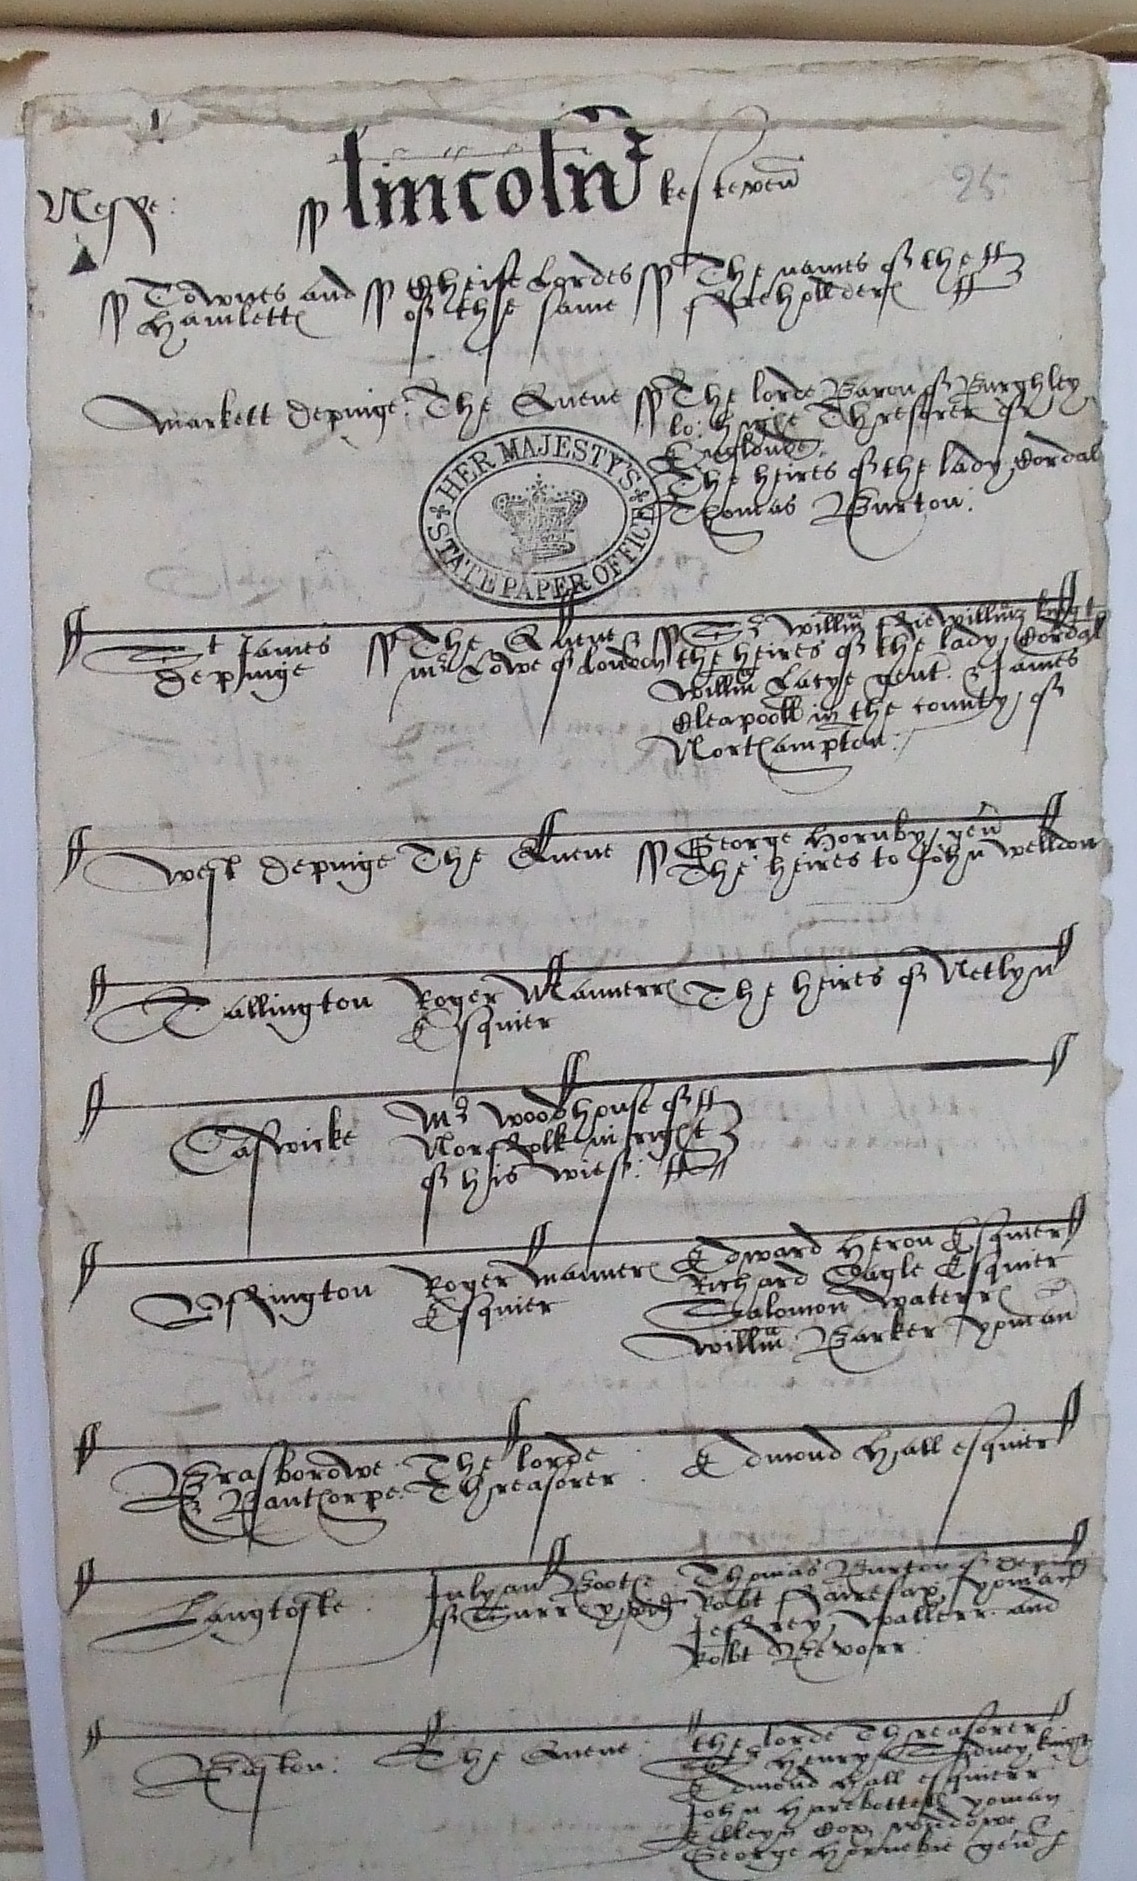 Nesse:
lincoln kesteven
25
Townes and
Hamlett
Cheife Lordes
of the same
The names of the
ffreholders
Markett Depinge. The Quene
The lorde Baron of Burghley
lo: highe Thresorer of
Englonde.
The heires of the lady Cordal
Thomas Burton:
HER MAJESTY'S STATE PAPER OFFICE
St James
Depinge
The Quene
mr Lowe of London
Sr Willm Fitzwillm knyght
the heires of the lady Cordal
Willm Lacye gent. & James
Cleapooll in the county of
Northampton:
West Depinge The Quene
George Hornby gen
The heires to John Welldon
Tallington
Roger Mannerr
Esquier
The heires of Netlyn
Caswicke
Mr Woodhouse of
Norffolk in right
of his wief:
Uffington
Roger Manners
Esquier
Edward Heron Esquier
Richard Cagle Esquier
Salomon Waterr
Willm Barker yoman
Brasbordwe
& Banthorpe:
The lorde
Threasorer
Edmond Hall esquier
Langtofte.
Julyan Boothe
of Surr
Thomas Burton of Depin
Robt Fairefax, yoman
Jeffrey Walterr and
Robt Bevorr.
Baston:
The Quene:
the lorde Threasorer
Sr Henry Sidney, knight
Edmond Hall esquierr
John Harebottell yoman
Elleyn Cox, widdowe &
George Hornebie gen